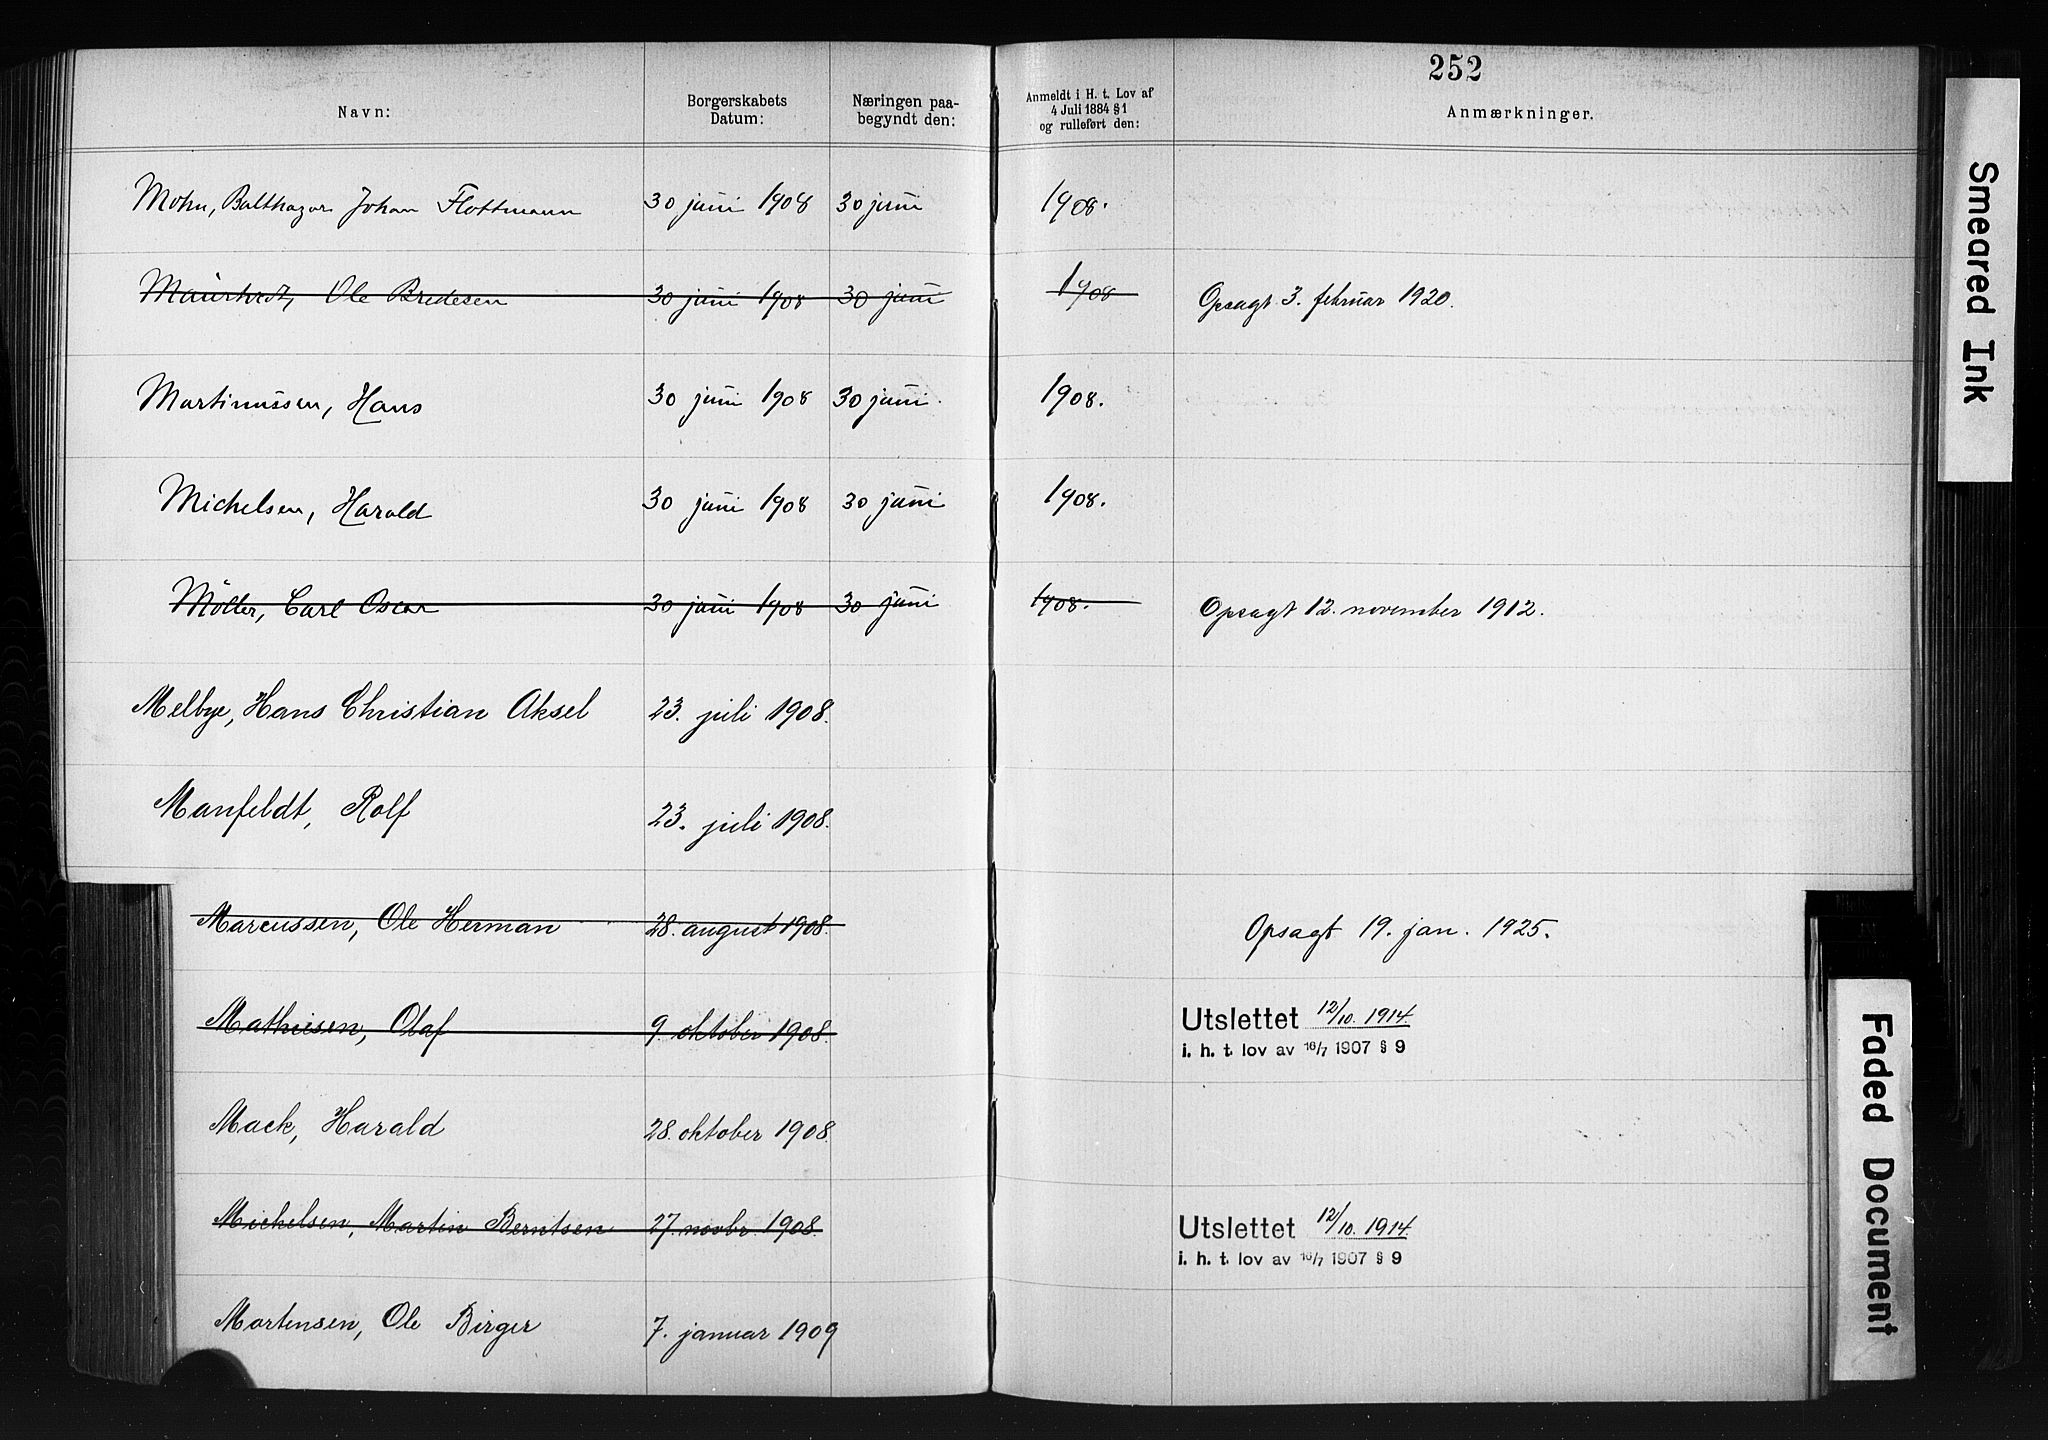 252
Navn: Borgerskabets Datum: Næringen paabegyndt den: Anmeldt i H. t. Lov af 4 Juli 1884 § 1 og rulleført den: Anmærkninger.
Mohn, Balthazar Johan Flottmann 30 juni 1908 30 juni 1908.
Ole Bredesen 30 juni 1908 30 juni 1908 Opsagt 3. februar 1920.
Martinussen, Hans 30 juni 1908 30 juni 1908.
Michelsen, Harald 30 juni 1908 30 juni 1908.
Möller, Carl Oscar 30 juni 1908 30 juni 1908. Opsagt 12. november 1912.
Melbye, Hans Christian Aksel 23. juli 1908.
Manfeldt, Rolf 23. juli 1908.
Marcussen, Ole Herman 28. august 1908. Opsagt 19. jan. 1925.
Mathiesen, Olaf 9. oktober 1908. Utslettet 12/10. 1914.
i. h. t. lov av 16/7 1907 § 9
Mack, Harald 28. oktober 1908.
Michelsen, Martin Berntsen 27. novbr. 1908. Utslettet 12/10. 1914.
i. h. t. lov av 16/7 1907 § 9
Mortensen, Ole Birger 7. januar 1909
Smeared Ink
Faded Document